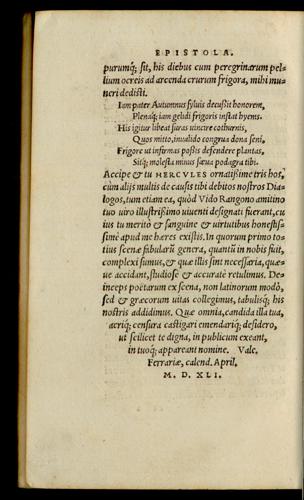 EPISTOLA.
purumq́; sit, his diebus cum peregrinarum pel-
lium ocreis ad arcenda crurum frigora, mihi mu-
neri dedisti.
Iam pater Autumnus syluis decussit honorem,
Plenaq́; iam gelidi frigoris instat hyems.
His igitur libeat suras uincire cothurnis,
Quos mitto, inualido congrua dona seni,
Frigore ut infirmas postis defendere plantas,
Sitq́; molesta minus sæua podagra tibi.
Accipe & tu HERCVLES ornatissime tris hos,
cùm alijs multis de causis tibi debitos nostros Dia-
logos, tum etiam ea, quòd Vido Rangono amitino
tuo uiro illustrissimo uiuenti designati fuerant, cu
ius tu meritò & sanguine & uirtutibus honestis-
simè apud me hæres existis. In quorum primo to-
tius scenæ fabularũ genera, quanti in nobis fuit,
complexi sumus, & quæ illis sint necessaria, quæ-
ue accidant, studiosè & accuratè retulimus. De-
inceps poëtarum ex scena, non latinorum modò,
sed & græcorum uitas collegimus, tabulisq́; his
nostris addidimus. Quæ omnia, candida illa tua,
acriq́; censura castigari emendariq́; desidero,
ut scilicet te digna, in publicum exeant,
in tuoq́; appareant nomine. Vale.
Ferrariæ, calend. April,
M. D. XLI.